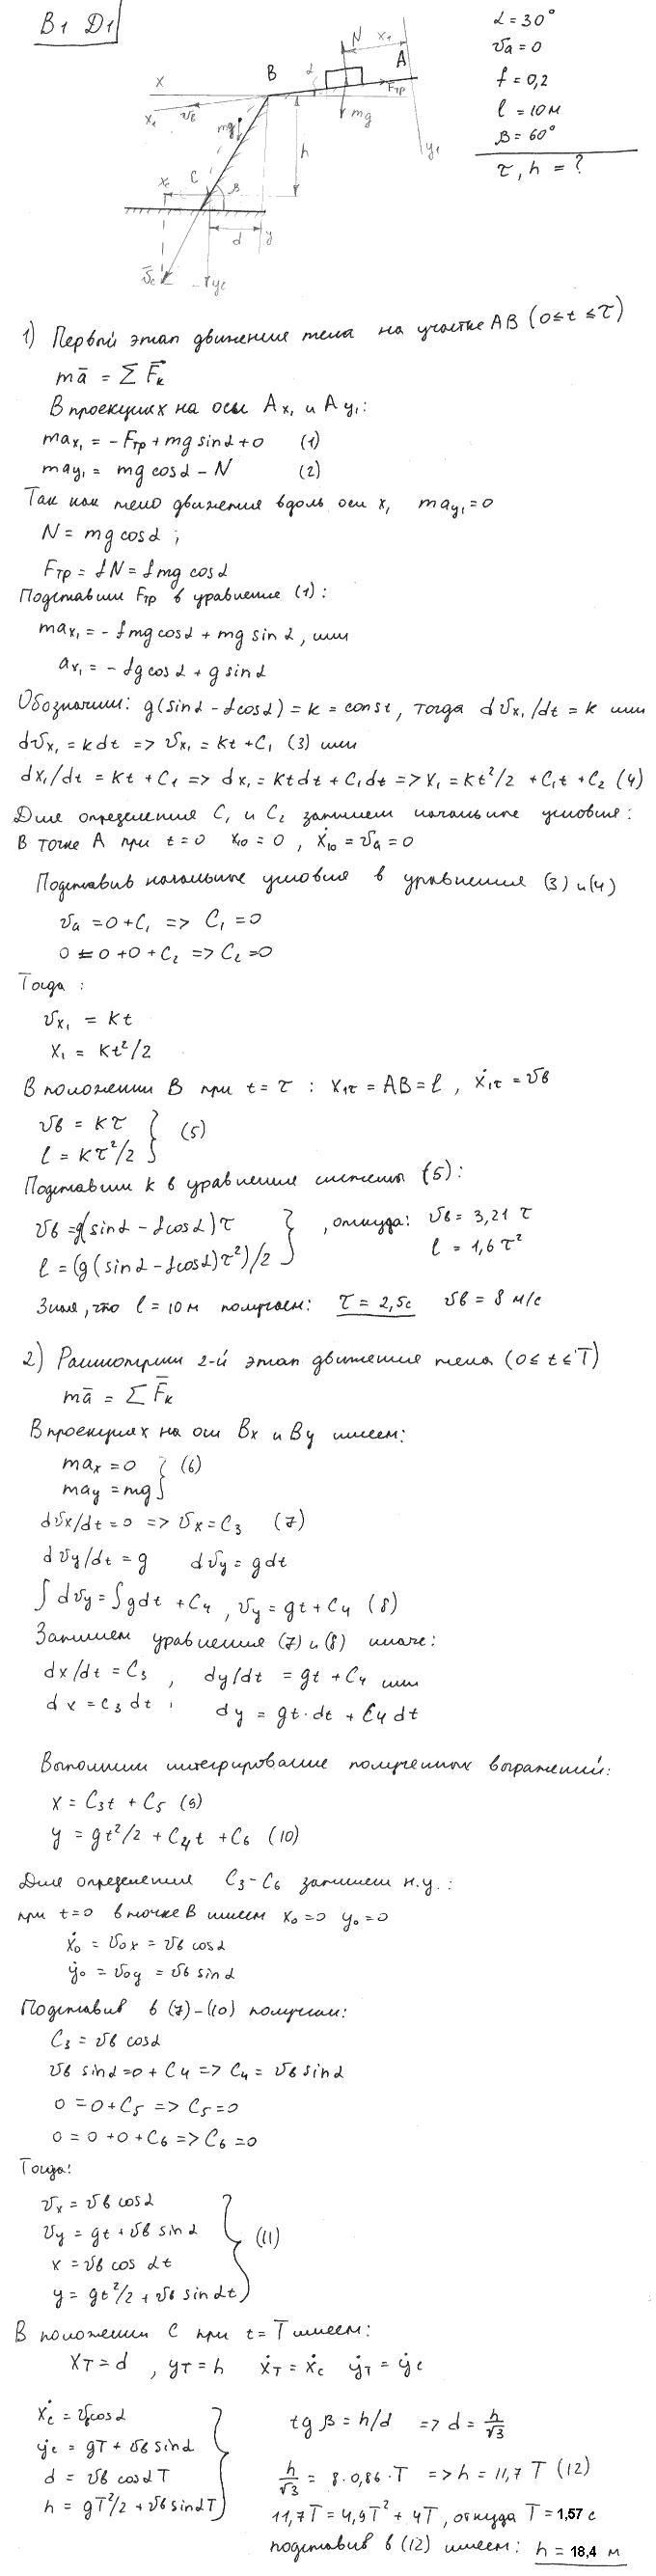 В1 Д1
α = 30°
υa = 0
f = 0,2
l = 10 м
β = 60°
τ, h = ?
N
x₁
A
B
α
Fтр
x
x₁
υв
mg
mg
y₁
h
C
xc
β
d
y
υ̅c
yc
1) Первый этап движение тела на участке AB (0≤t≤τ)
ma̅ = ΣF̅к
В проекциях на осы Ax₁ и Ay₁:
max₁ = -Fтр + mg sinα + 0 (1)
may₁ = mg cosα - N (2)
Так как тело движения вдоль оси x₁ may₁ = 0
N = mg cosα ;
Fтр = fN = fmg cosα
Подставим Fтр в уравнение (1):
max₁ = - fmg cosα + mg sinα, или
ax₁ = - fg cosα + g sinα
Обозначим: g(sinα - fcosα) = k = const, тогда dυx₁/dt = k или
dυx₁ = kdt => υx₁ = kt + C₁ (3) или
dx₁/dt = kt + C₁ => dx₁ = ktdt + C₁dt => x₁ = kt²/2 + C₁t + C₂ (4)
Для определения C₁ и C₂ запишем начальные условия:
В точке A при t=0 x₁₀ = 0, ẋ₁₀ = υa = 0
Подставив начальные условия в уравнения (3) и (4)
υa = 0 + C₁ => C₁ = 0
0 = 0 + 0 + C₂ => C₂ = 0
Тогда :
υx₁ = kt
x₁ = kt²/2
В положении B при t = τ : x₁τ = AB = l, ẋ₁τ = υв
υв = kτ
l = kτ²/2 } (5)
Подставим k в уравнение системы (5):
υв = g(sinα - fcosα)τ
l = (g(sinα - fcosα)τ²)/2 } , откуда: υв = 3,21 τ
l = 1,6 τ²
Зная, что l = 10 м получаем: τ = 2,5 с υв = 8 м/с
2) Рассмотрим 2-й этап движение тела (0≤t≤T)
ma̅ = ΣF̅к
В проекциях на оси Bx и By имеем:
max = 0
may = mg } (6)
dυx/dt = 0 => υx = C₃ (7)
dυy/dt = g dυy = gdt
∫dυy = ∫gdt + C₄, υy = gt + C₄ (8)
Запишем уравнения (7) и (8) иначе:
dx/dt = C₃ , dy/dt = gt + C₄ или
dx = C₃dt , dy = gt·dt + C₄dt
Выполним интегрирование полученных выражений:
x = C₃t + C₅ (9)
y = gt²/2 + C₄t + C₆ (10)
Для определения C₃-C₆ запишем н.у.:
при t=0 в точке B имеем x₀=0 y₀=0
ẋ₀ = υ₀x = υв cosα
ẏ₀ = υ₀y = υв sinα
Подставив в (7)-(10) получим:
C₃ = υв cosα
υв sinα = 0 + C₄ => C₄ = υв sinα
0 = 0 + C₅ => C₅ = 0
0 = 0 + 0 + C₆ => C₆ = 0
Тогда:
υx = υв cosα
υy = gt + υв sinα
x = υв cosαt
y = gt²/2 + υв sinαt } (11)
В положении C при t = T имеем:
xT = d , yT = h ẋT = ẋc ẏT = ẏc
ẋc = υв cosα
ẏc = gT + υв sinα
d = υв cosαT
h = gT²/2 + υв sinαT
tg β = h/d => d = h/√3
h/√3 = 8·0,86·T => h = 11,7 T (12)
11,7T = 4,9T² + 4T, откуда T = 1,57 с
подставив в (12) имеем: h = 18,4 м